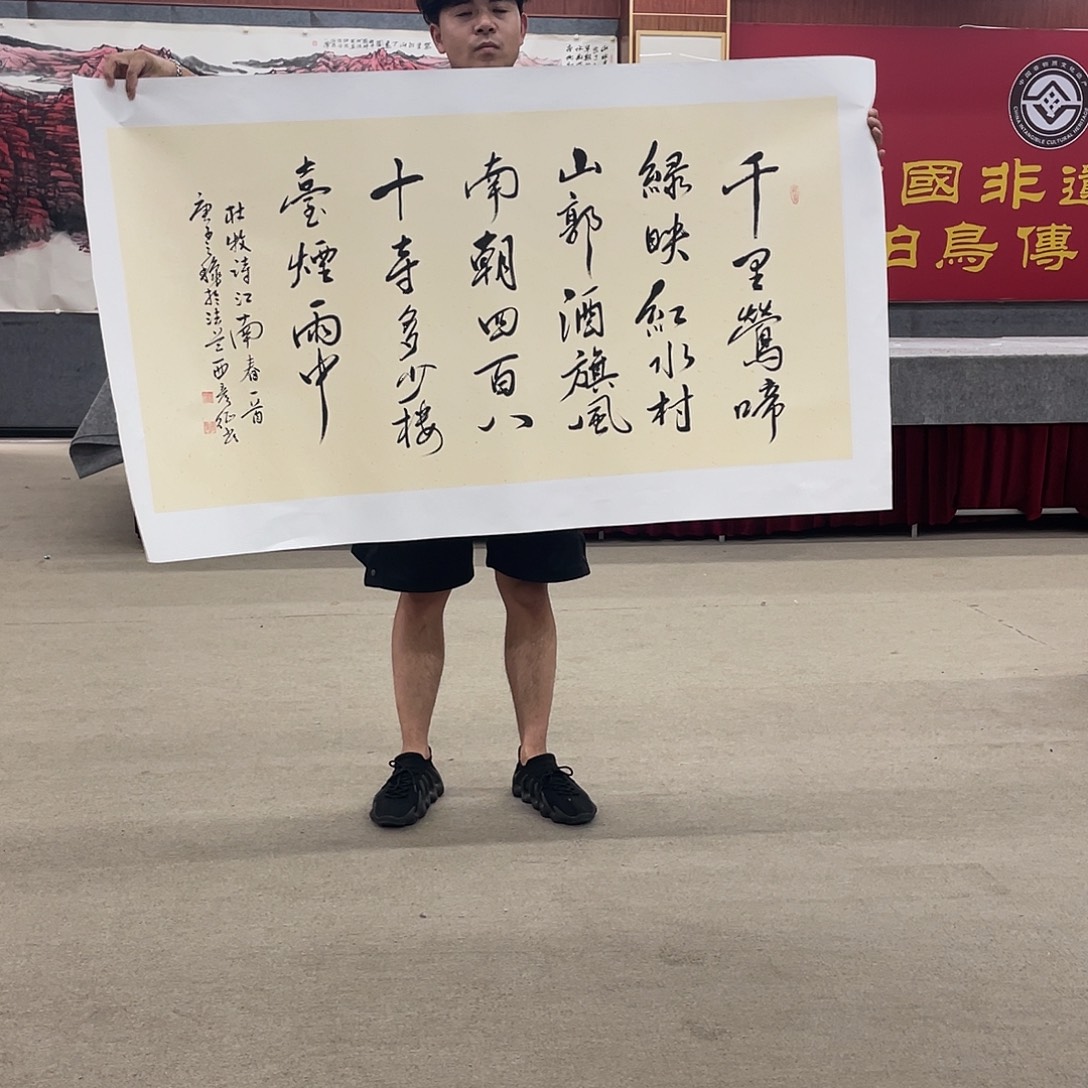 千里鶯啼
緑映紅水村
山郭酒旗風
南朝四百八
十寺多少樓
臺煙雨中
杜牧诗江南春一首
庚子之穐於法兰西
CHINA INTANGIBLE CULTURAL HERITAGE
國非
鳥傳